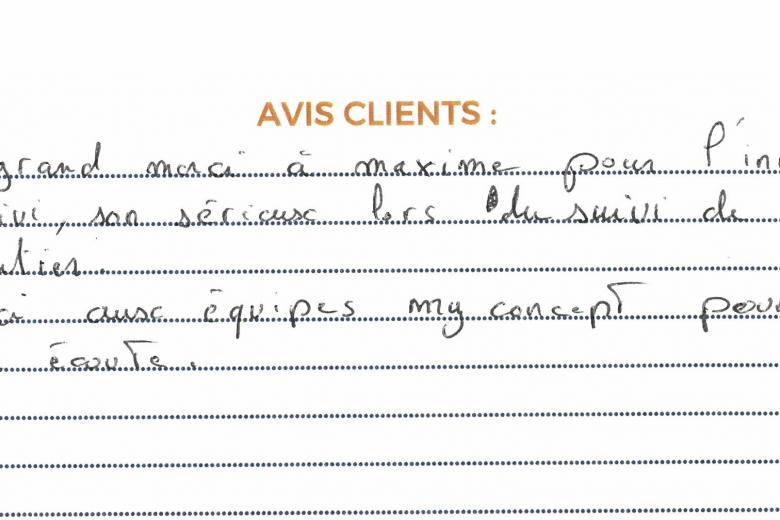 AVIS CLIENTS :
grand merci à maxime pour l'in
ivi, son sérieux lors du suivi de
ntier.
ci aux équipes my concept pour
écoute.